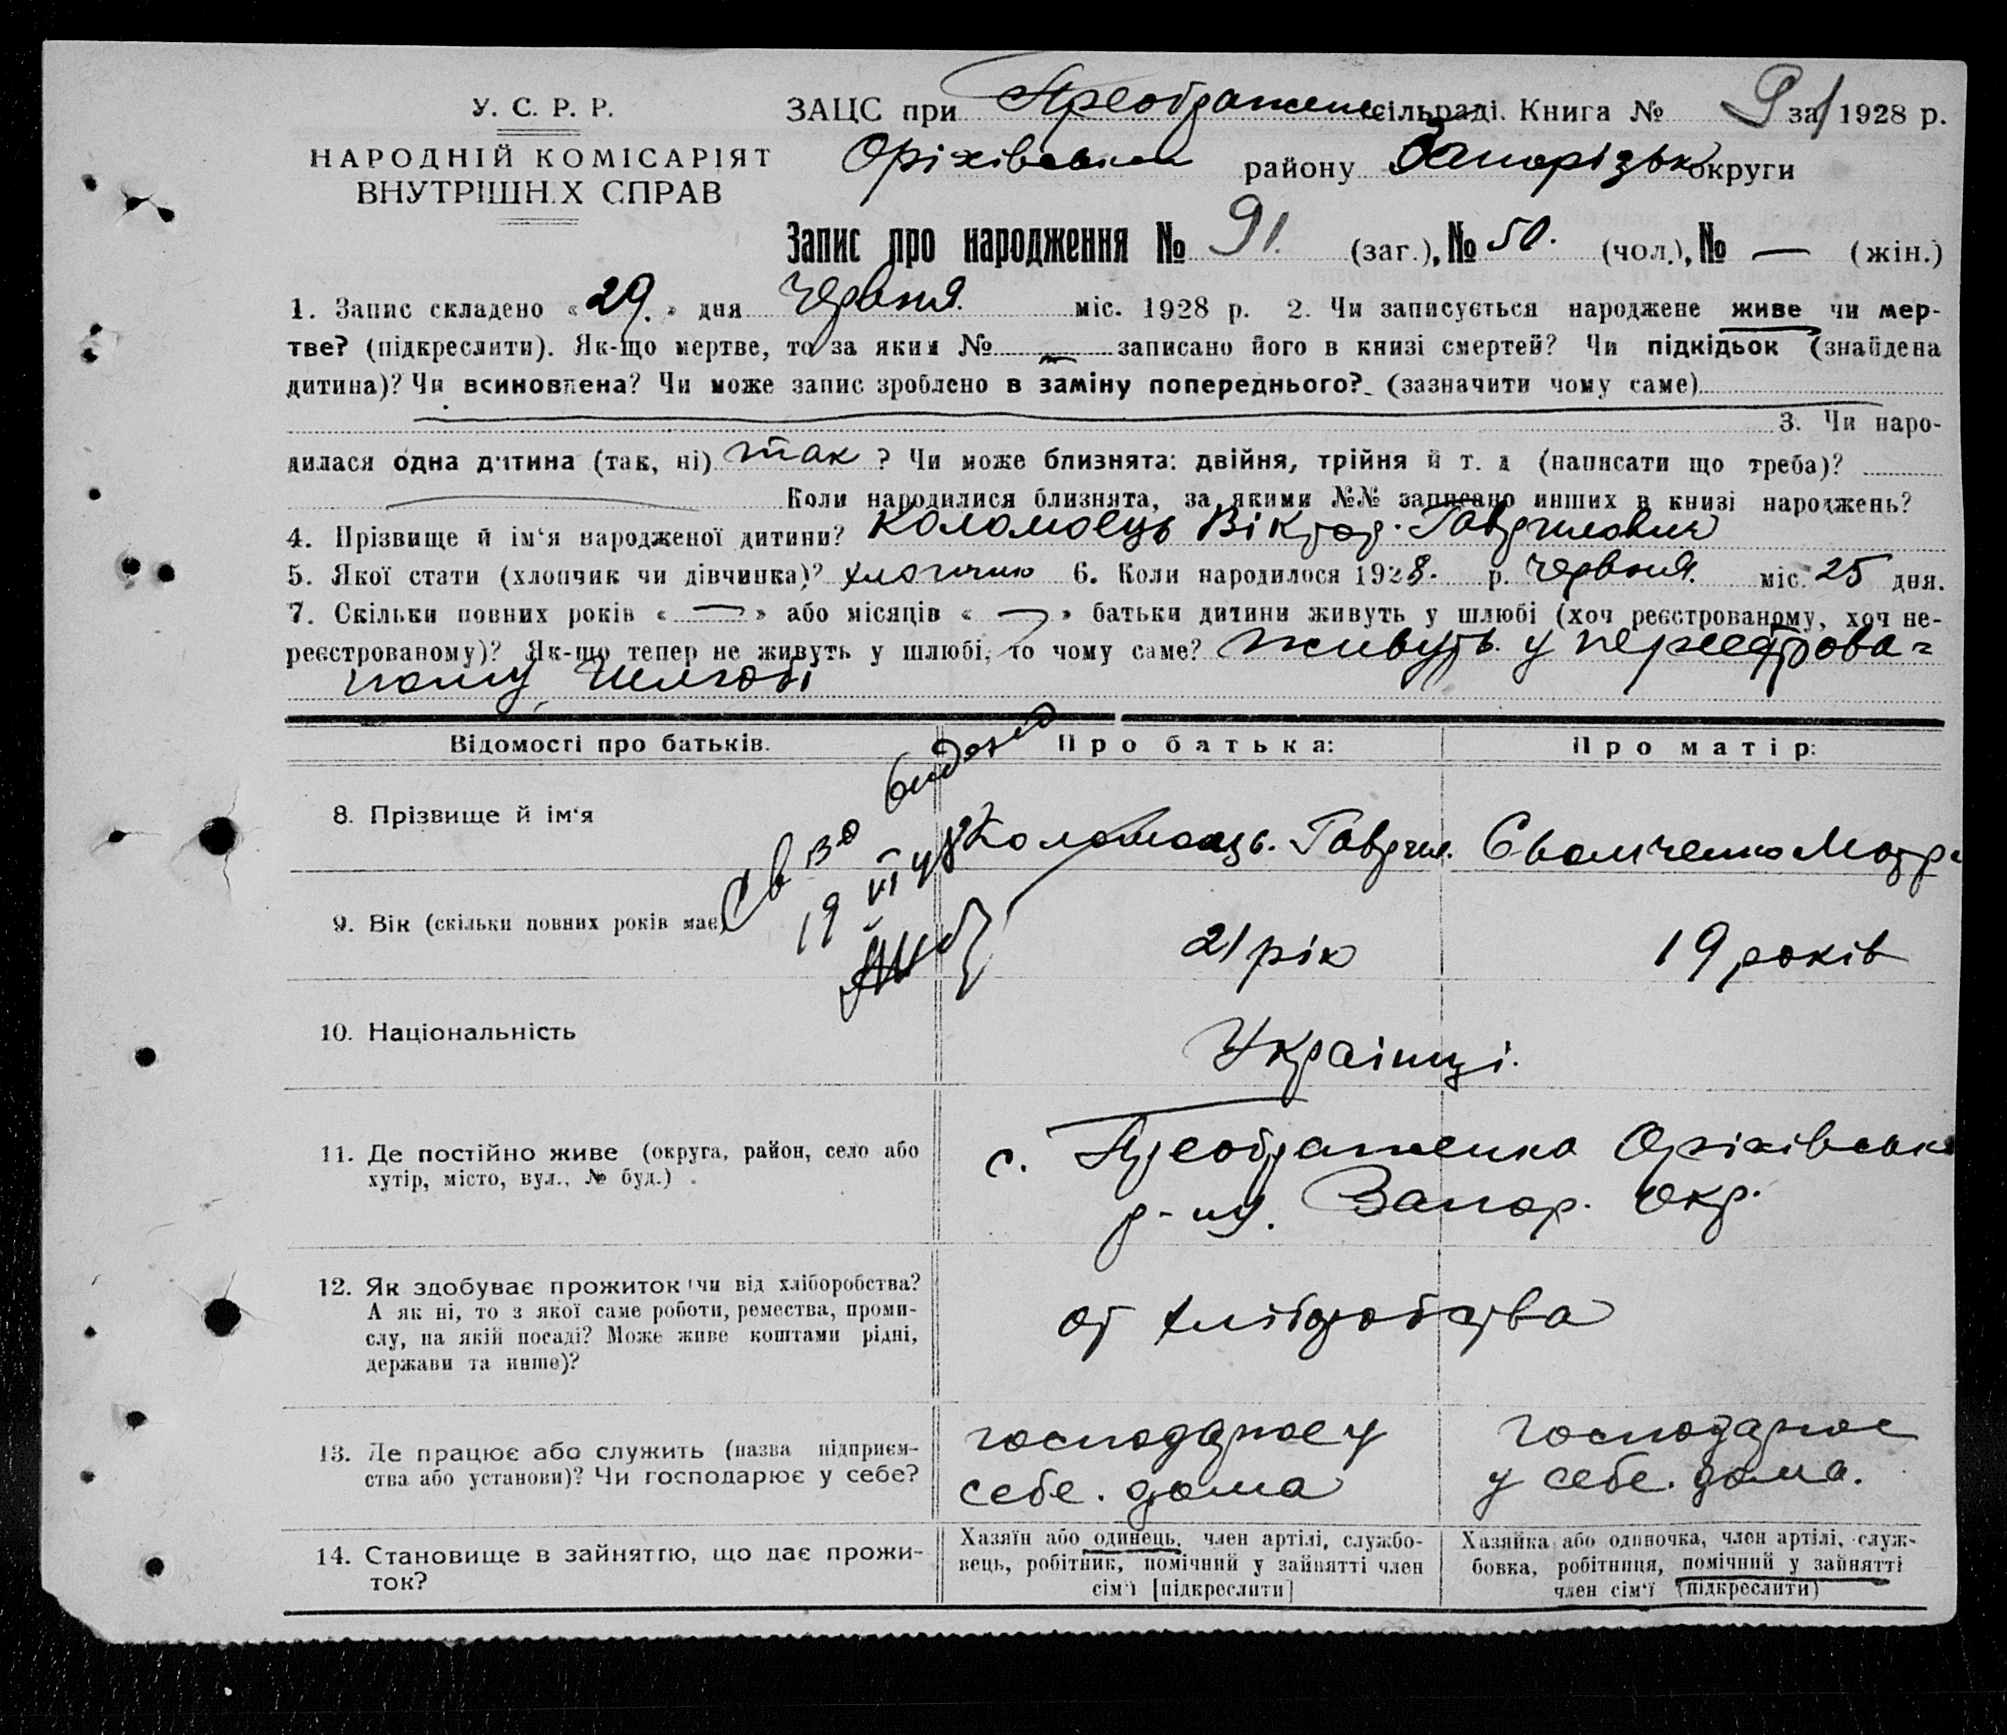 У. С. Р. Р.
НАРОДНІЙ КОМІСАРІЯТ
ВНУТРІШН.Х СПРАВ
ЗАЦС при Преображенс сільраді. Книга № за 1928 р.
Оріхівськ району Запорізьк округи
Запис про народження № 91. (заг.), № 50. (чол.), № — (жін.)
1. Запис складено «29.» дня червня. міс. 1928 р. 2. Чи записується народжене живе чи мер-
тве? (підкреслити). Як-що мертве, то за яким № — записано його в книзі смертей? Чи підкідьок (знайдена
дитина)? Чи всиновлена? Чи може запис зроблено в заміну попереднього? (зазначити чому саме)
3. Чи наро-
дилася одна дитина (так, ні) так ? Чи може близнята: двійня, трійня й т. д (написати що треба)?
Коли народилися близнята, за якими №№ записано инших в книзі народжень?
4. Прізвище й ім'я народженої дитини? Коломоєць Віктор. Гаврилович
5. Якої стати (хлопчик чи дівчинка)? хлопчик 6. Коли народилося 1928. р. червня. міс. 25 дня.
7. Скільки повних років « — » або місяців « — » батьки дитини живуть у шлюбі (хоч реєстрованому, хоч не-
реєстрованому)? Як-що тепер не живуть у шлюбі, то чому саме? живуть у
ному шлюбі
Відомості про батьків. Про батька: Про матір:
8. Прізвище й ім'я Коломоєць. Гаврил.
Св во
19 VI 48
9. Вік (скільки повних років має) 21 рік 19 років
10. Національність Українці.
11. Де постійно живе (округа, район, село або с. Преображенка Оріхівськ
хутір, місто, вул., № буд.) р-ну. Запор. окр.
12. Як здобуває прожиток чи від хліборобства?
А як ні, то з якої саме роботи, ремества, проми-
слу, на якій посаді? Може живе коштами рідні,
держави та инше)?
от хліборобства
13. Де працює або служить (назва підприєм-
ства або установи)? Чи господарює у себе?
господарює у
себе. дома
господарює
у себе. дома.
14. Становище в зайняттю, що дає прожи-
ток?
Хазяїн або одинець, член артілі, службо-
вець, робітник, помічний у зайнятті член
сім'ї [підкреслити]
Хазяйка або одиночка, член артілі, служ-
бовка, робітниця, помічний у зайнятті
член сім'ї (підкреслити)